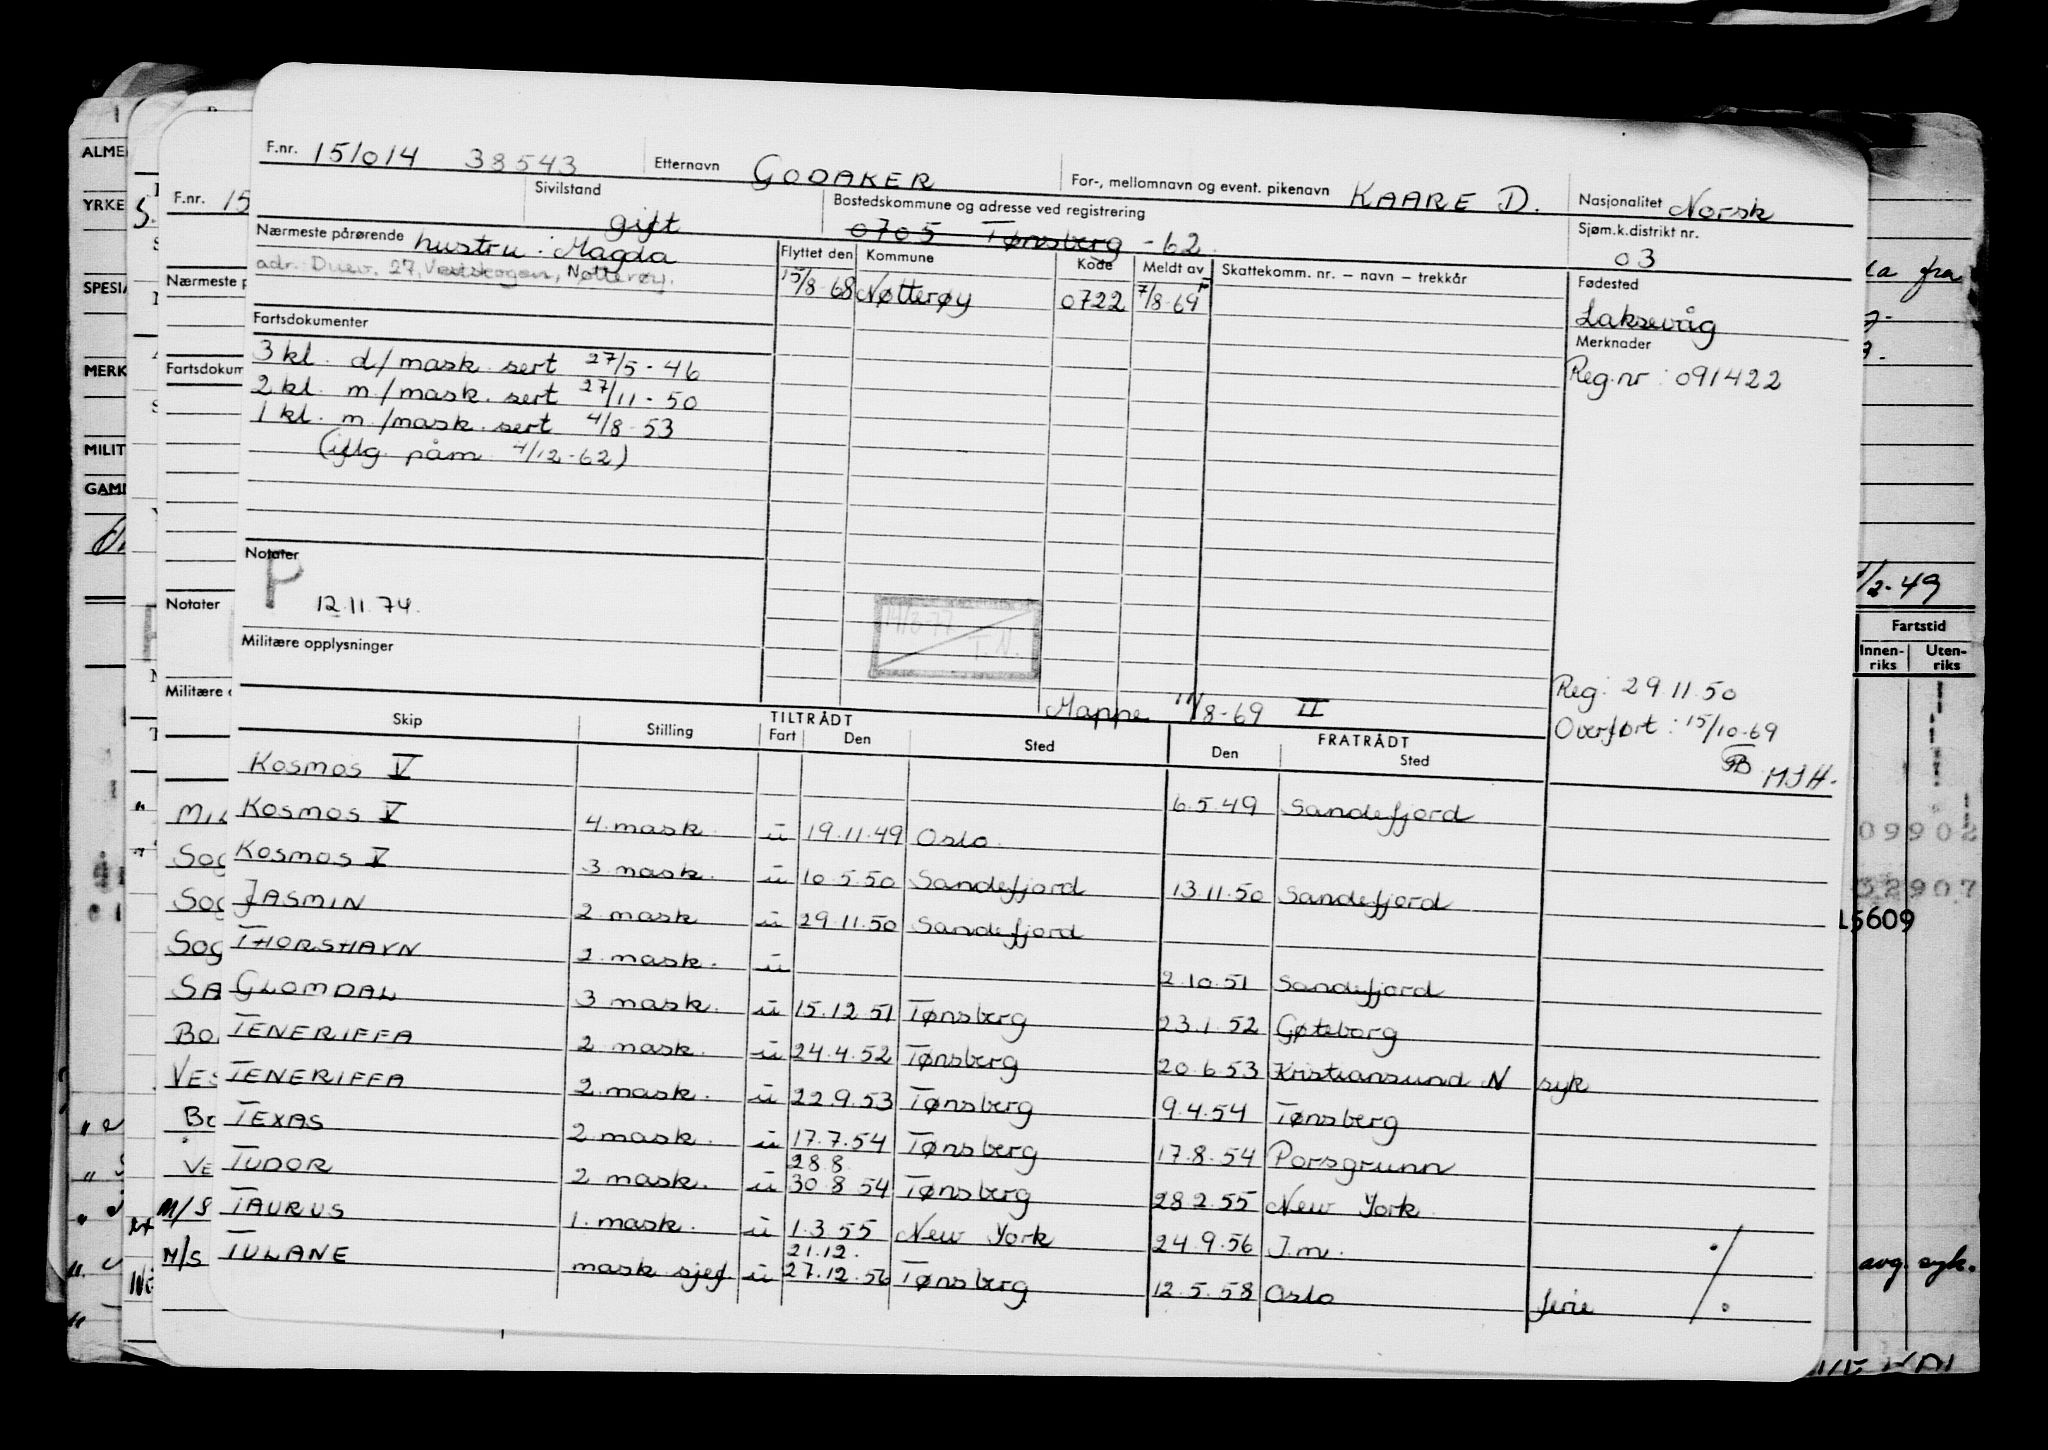 F.nr. 151014 38543 Etternavn GODAKER For-, mellomnavn og event. pikenavn KAARE D. Nasjonalitet Norsk
Sivilstand gift Bostedskommune og adresse ved registrering 0705 Tønsberg - 62. Sjøm.k.distrikt nr. 03
Nærmeste pårørende hustru: Magda
adr. Duev. 27, Vestskogen, Nøtterøy.
Flyttet den Kommune Kode Meldt av Skattekomm. nr. – navn – trekkår
15/8-68 Nøtterøy 0722 7/8-69
Fødested
Laksevåg
Merknader
Reg.nr: 091422
Fartsdokumenter
3 kl. d/mask. sert 27/5-46
2 kl. m/mask. sert 27/11-50
1 kl. m/mask. sert 4/8-53
(iflg. påm. 4/12-62)
Notater
P 12.11.74.
T.N.
Militære opplysninger
Mappe 11/8-69 II
Reg: 29.11.50
Overført: 15/10-69
MJH.
Skip Stilling TILTRÅDT Fart Den Sted FRATRÅDT Den Sted
KOSMOS V 6.5.49 Sandefjord
KOSMOS V 4. mask. u 19.11.49 Oslo.
KOSMOS V 3. mask. u 10.5.50 Sandefjord 13.11.50 Sandefjord
JASMIN 2. mask u 29.11.50 Sandefjord
THORSHAVN 2. mask. u 2.10.51 Sandefjord
GLOMDAL 3 mask. u 15.12.51 Tønsberg 23.1.52 Gøteborg
TENERIFFA 2. mask. u 24.4.52 Tønsberg 20.6.53 Kristiansund N syk
TENERIFFA 2. mask. u 22.9.53 Tønsberg 9.4.54 Tønsberg
TEXAS 2. mask. u 17.7.54 Tønsberg 17.8.54 Porsgrunn
TUDOR 2 mask. u 28.8. 30.8.54 Tønsberg 28.2.55 New York
TAURUS 1. mask. u 1.3.55 New York 24.9.56 I.m.
TULANE mask.sjef u 21.12. 27.12.56 Tønsberg 12.5.58 Oslo ferie
ALME
YRKE
SPESIA
MERK
MILIT
GAM
F.nr. 15
Nærmeste p
Fartsdokum
Notater
Militære o
M/S
M/S
fra
/2-49
Fartstid
Innen-riks Uten-riks
09902
32907
15609
avg. syk.